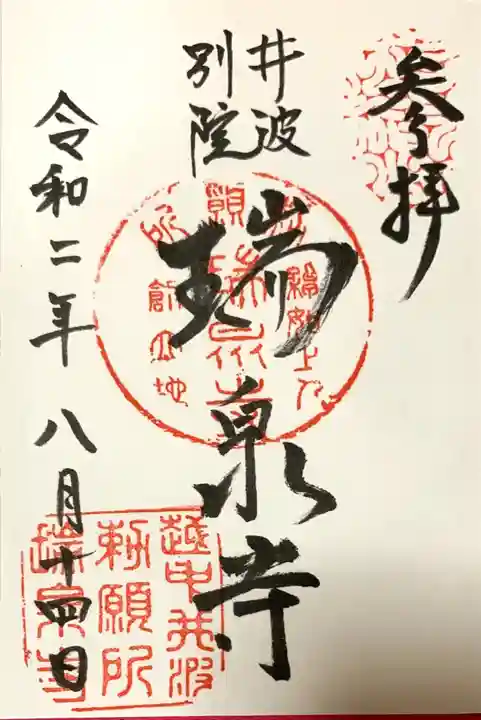 参拝
井波
別院
瑞泉寺
令和二年八月十四日
越中井波
勅願所
瑞泉寺